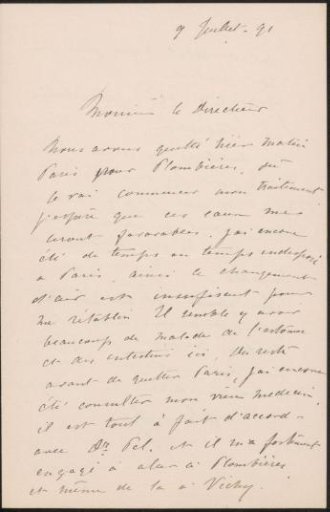 9 Juillet. 91
Monsieur le Directeur
Nous avons quitté hier matin
Paris pour Plombières, où
je vai commencer mon traitement
j'espère que ces eaux me
seront favorables. j'ai encore
été de temps en temps indisposé
a Paris, ainsi le changement
d'air est insuffisant pour
me rétablir. Il semble y avoir
beaucoup de malade de l'estomac
et des intestins ici. Du reste
avant de quitter Paris, j'ai encore
été consulter mon vieux medecin,
il est tout à fait d'accord
avec Dr Pel, et il m'a fortement
engagé à aler à Plombières
et même de la à Vichy.